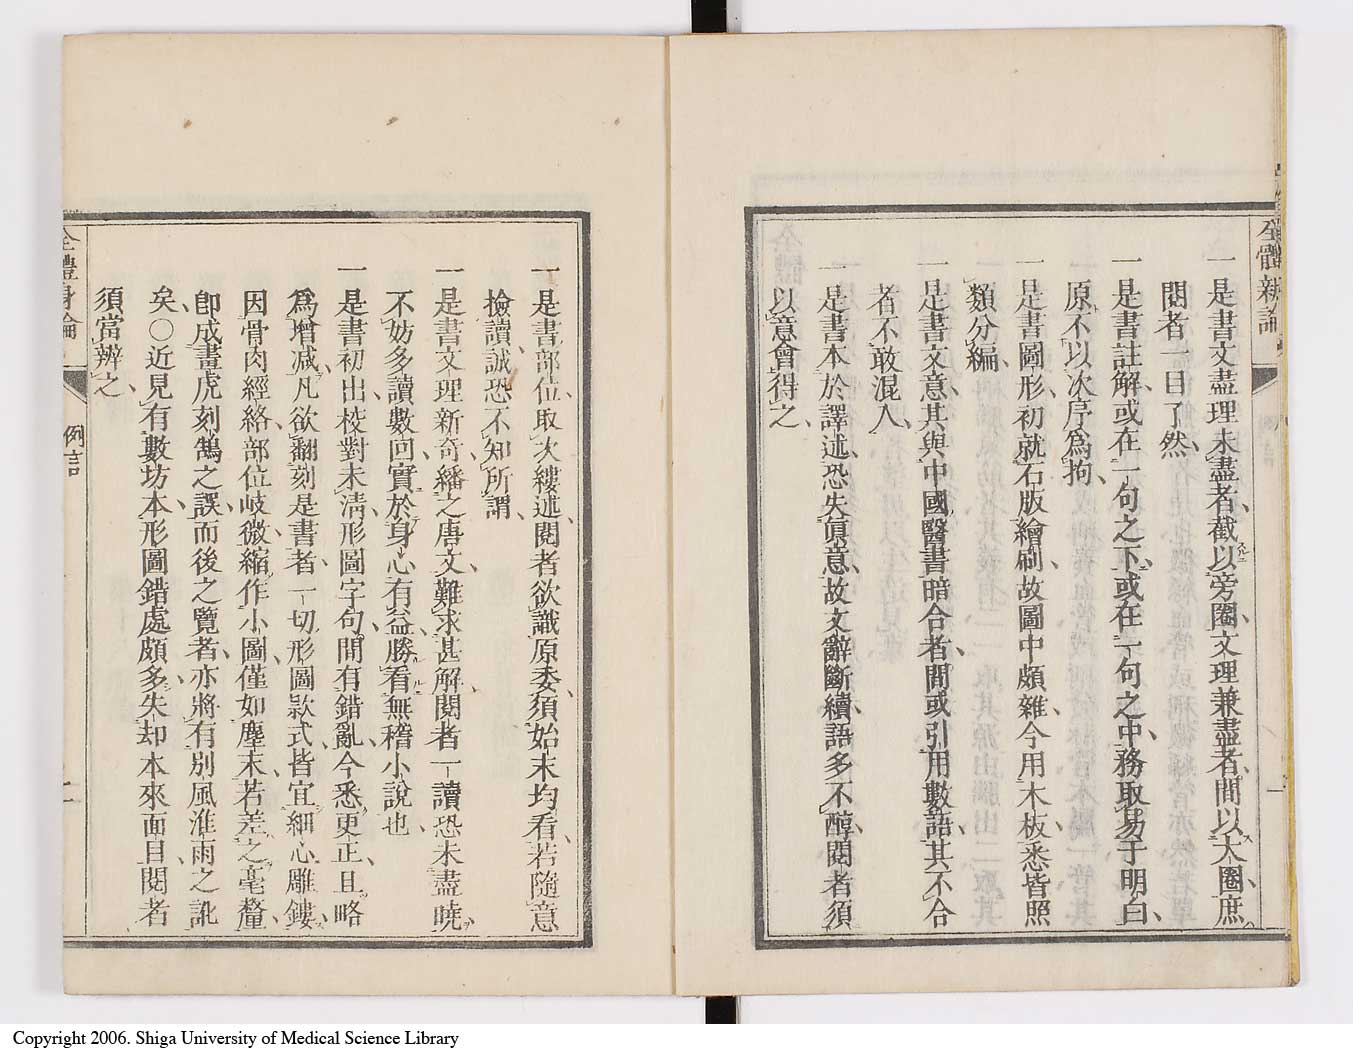 全體新論
例言
一
一是書文盡理未盡者截以旁圈文理兼盡者間以大圈庶
閱者一目了然
一是書註解或在一句之下或在一句之中務取易于明白
原不以次序爲拘
一是書圖形初就石版繪刷故圖中頗雜今用木板悉皆照
類分編
一是書文意其與中國醫書暗合者間或引用數語其不合
者不敢混入
一是書本於譯述恐失眞意故文辭斷續語多不醇閱者須
以意會得之
一是書部位取次縷述閱者欲識原委須始末均看若隨意
撿讀誠恐不知所謂
一是書文理新奇繙之唐文難求甚解閱者一讀恐未盡曉
不妨多讀數回實於身心有益勝看無稽小說也
一是書初出校對未淸形圖字句間有錯亂今悉更正且略
爲增減凡欲翻刻是書者一切形圖欵式皆宜細心雕鏤
因骨肉經絡部位岐微縮作小圖僅如塵末若差之毫釐
卽成畫虎刻鵠之誤而後之覽者亦將有別風淮雨之訛
矣○近見有數坊本形圖錯處頗多失却本來面目閱者
須當辨之
全體新論
例言
二
Copyright 2006. Shiga University of Medical Science Library